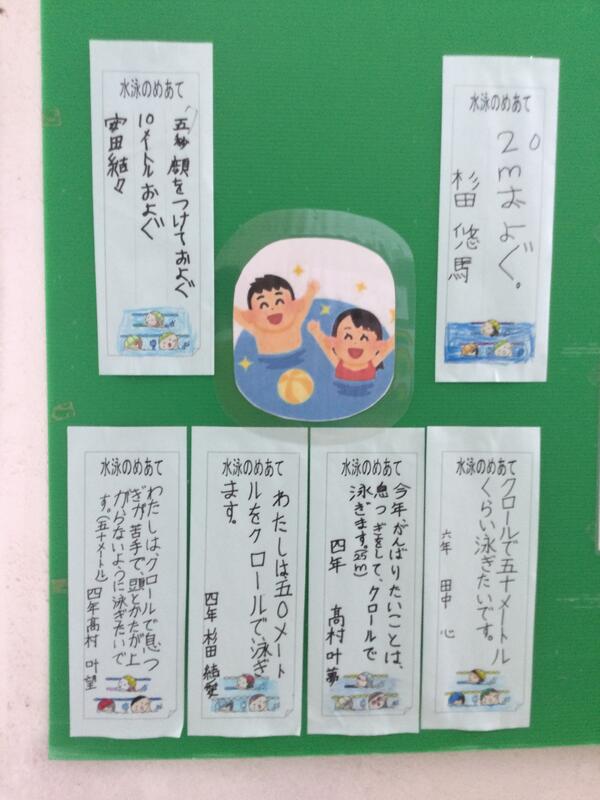 水泳のめあて
五秒顔をつけておよぐ
10メートルおよぐ
安田結々
水泳のめあて
2mおよぐ。
杉田悠馬
水泳のめあて
わたしは、クロールで息つ
ぎが苦手で頭とかたが上
がらないように泳ぎたいで
す。(五十メートル)
四年髙村叶望
水泳のめあて
わたしは五〇メート
ルをクロールで、泳ぎ
ます。
四年 杉田結愛
水泳のめあて
今年、がんばりたいことは、
息つぎをして、クロールで
泳ぎます。(25m)
四年 髙村叶夢
水泳のめあて
クロールで五十メートル
くらい泳ぎたいです。
六年 田中 心